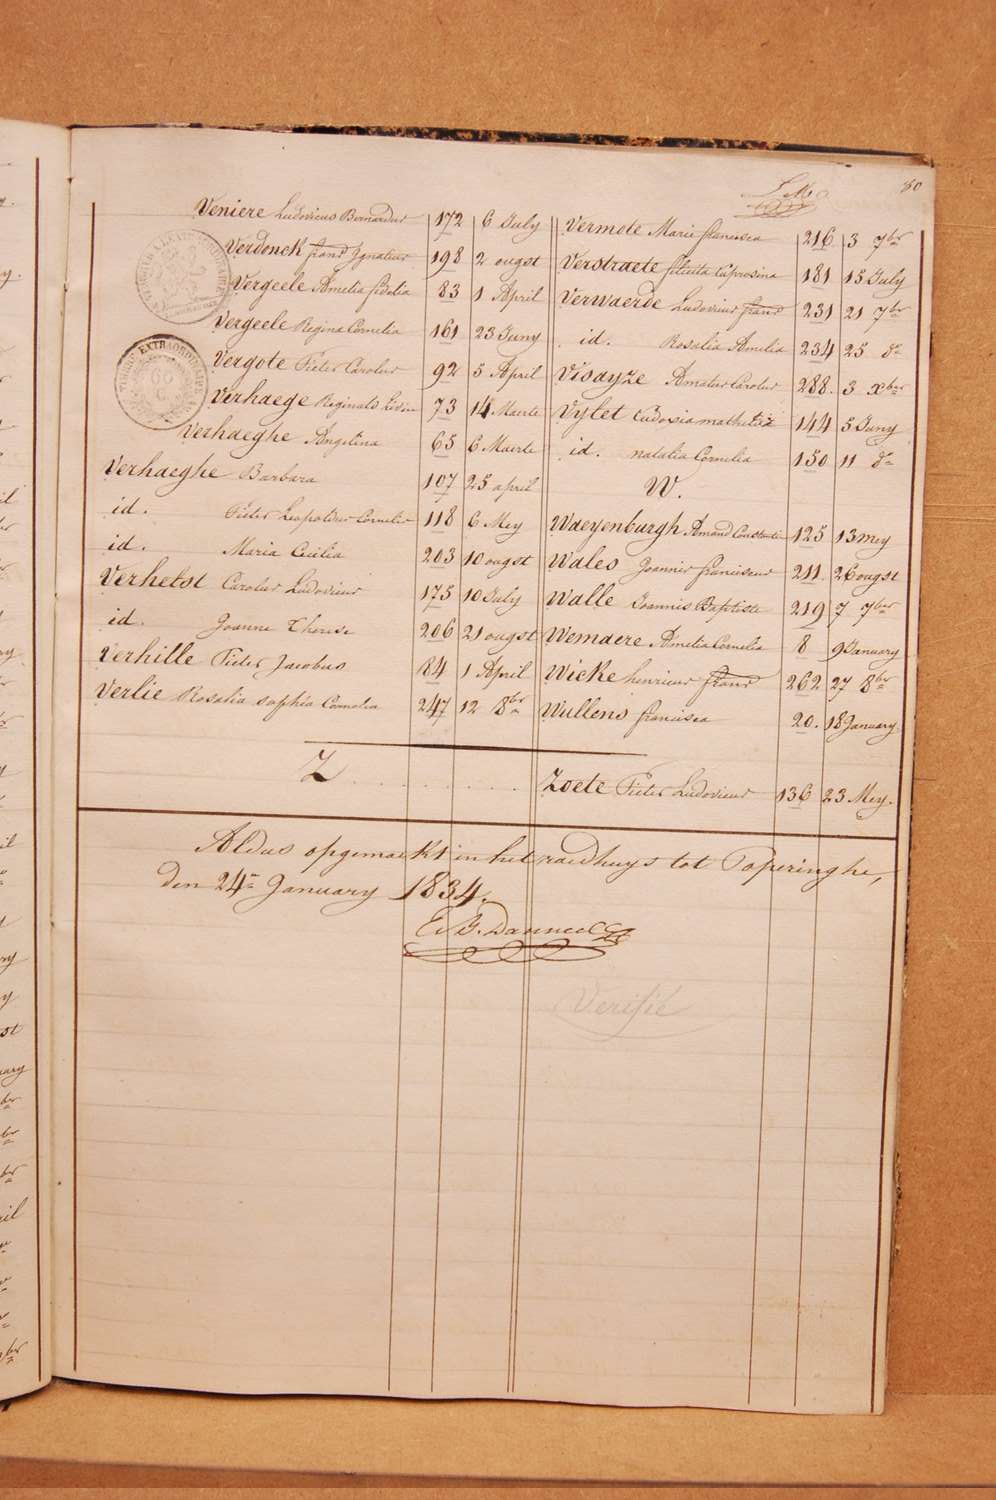 80
Veniere Ludovicus Bernardus 172 6 July
Verdonck frans Ignatius 198 2 ougst
Vergeele Amelia fidelia 83 1 April
Vergeele Regina Cornelia 161 23 Juny
Vergote Pieter Carolus 92 5 April
Verhaege Reginald 73 14 Maerte
Verhaeghe Angelina 65 6 Maerte
Verhaeghe Barbara 107 25 april
id. Pieter Leopoldus Cornelis 118 6 Mey
id. Maria Cecilia 203 10 ougst
Verhelst Carolus Ludovicus 175 10 July
id. Joanne Therese 206 21 ougst
Verhille Pieter Jacobus 84 1 April
Verlie Rosalia sophia Cornelia 247 12 8br
Vermote Marie francisca 216 3 7br
Verstraete felicita Euprosina 181 15 July
Verwaerde Ludovicus frans 231 21 7br
id. Rosalia Amelia 234 25 do
Visayze Amatus Carolus 288. 3 xber
Vylet Eudoxia 144 5 Juny
id. natalia Cornelia 150 11 do
W.
Waeyenburgh Amand Constantin 125 13 mey
Wales Joannis franciscus 211. 26 ougst
Walle Joannis Baptiste 219 7 7ber
Wemaere Amelia Cornelia 8 9 January
Wicke henricus frans 262 27 8br
Wullens francisca 20. 18 January
Z . . . . . . . .
Zoete Pieter Ludovicus 136 23 Mey.
Aldus opgemaekt in het raedhuys tot Poperinghe,
den 24n January 1834.
Verifié
TIMBRE EXTRAORDINAIRE